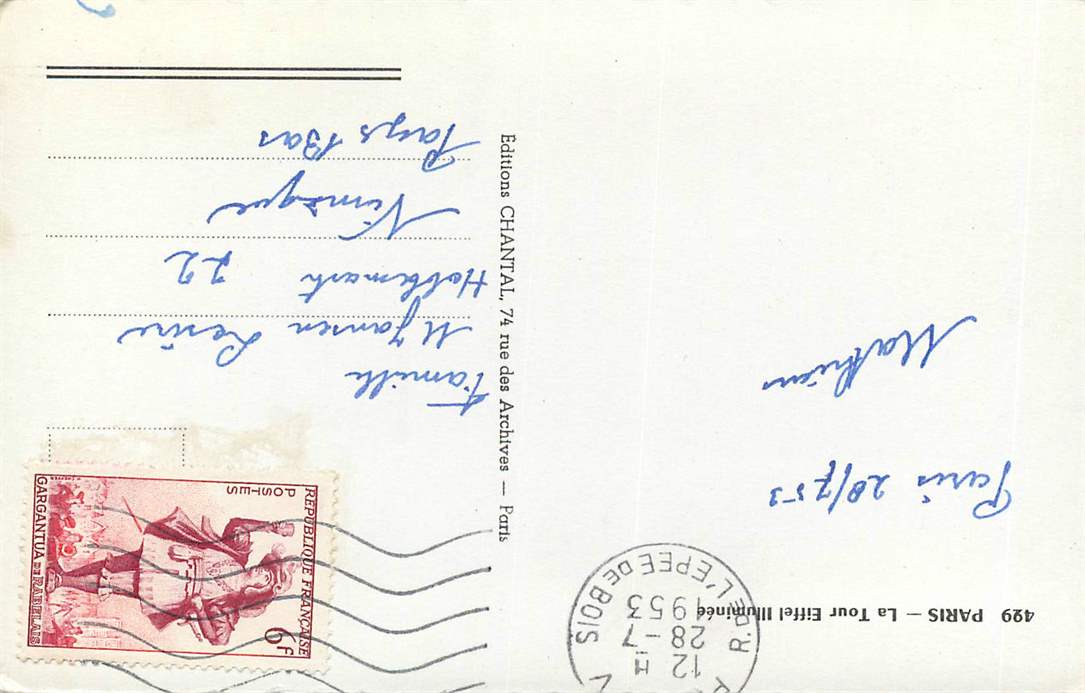 429 PARIS — La Tour Eiffel Illuminée
Paris 28/7 53
Mathieu
Éditions CHANTAL, 74 rue des Archives — Paris
R. DE L'EPEE DE BOIS
12 H
28-7
1953
6f
REPUBLIQUE FRANÇAISE
POSTES
GARGANTUA DE RABELAIS
Famille
M Jansen
22
Nimègue
Pays Bas